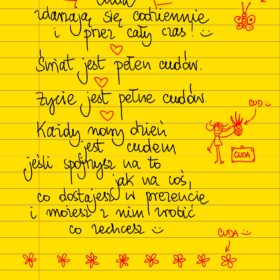 Cuda
zdarzają się codziennie
i przez cały czas!
Świat jest pełen cudów.
Życie jest pełne cudów.
CUD
Każdy nowy dzień
jest cudem
CUDA
jeśli spojrzysz na to
jak na coś,
co dostajesz w prezencie
i możesz z nim zrobić
co zechcesz
CUDA